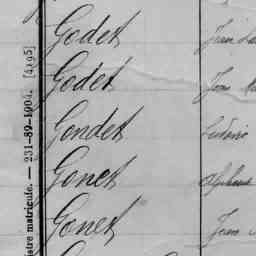 Godet
Godet
Gondet
Gonet
Gonet
Jean
Ludovic
Alphonse
Jean
istre matricule. — 231-89-1904. [4195]